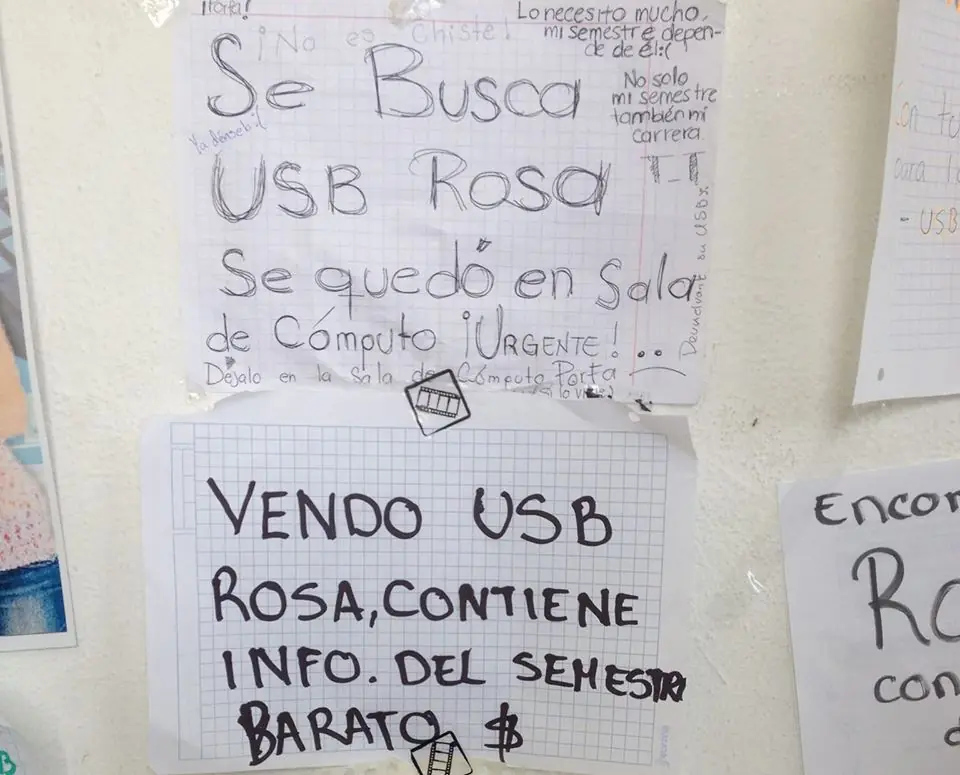 ¡Porfa!
¡No es Chiste!
Lo necesito mucho,
mi semestre depen-
de de él:(
Se Busca
No solo
mi semestre
también mi
carrera
T_T
Ya dénselo:(
USB Rosa
Devuelvanle su USB
Se quedó en Sala
de Cómputo ¡URGENTE!
Déjalo en la Sala de Cómputo Porfa
VENDO USB
ROSA, CONTIENE
INFO. DEL SEMESTR
BARATO $
para
- USB
Encon
Ro
con
d
B